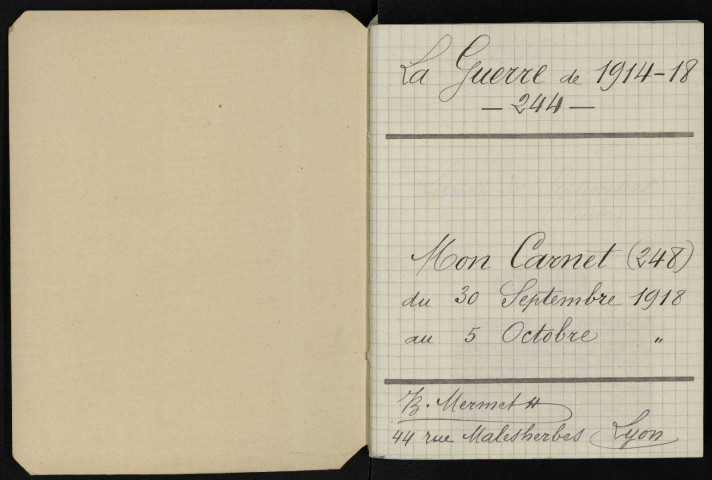 La Guerre de 1914-18
— 244 —
Mon Carnet (248)
du 30 Septembre 1918
au 5 Octobre "
B. Mermet
44 rue Malesherbes Lyon